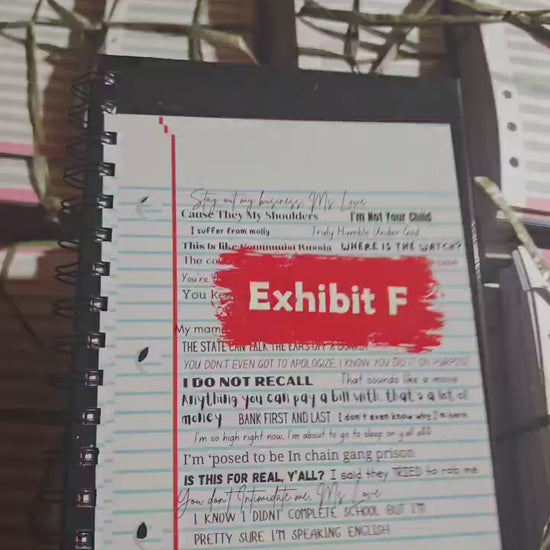 Stay out my business, Ms. Love
Cause They My Shoulders I'm Not Your Child
I suffer from molly Truly Humble Under God
This is like Communist Russia WHERE IS THE WATCH?
The
You're
You
Exhibit F
My mama
THE STATE CAN TALK THE EARS OFF A
YOU DON'T EVEN GOT TO APOLOGIZE, I KNOW YOU DID IT ON PURPOSE
I DO NOT RECALL That sounds like a movie
Anything you can pay a bill with, that's a lot of
money BANK FIRST AND LAST I don't even know why I'm here
I'm so high right now, I'm about to go to sleep on y'all
I'm 'posed to be In chain gang prison
IS THIS FOR REAL, Y'ALL? I said they TRIED to rob me
You don't Intimidate me, Ms. Love
I KNOW I DIDNT COMPLETE SCHOOL BUT I'M
PRETTY SURE I'M SPEAKING ENGLISH